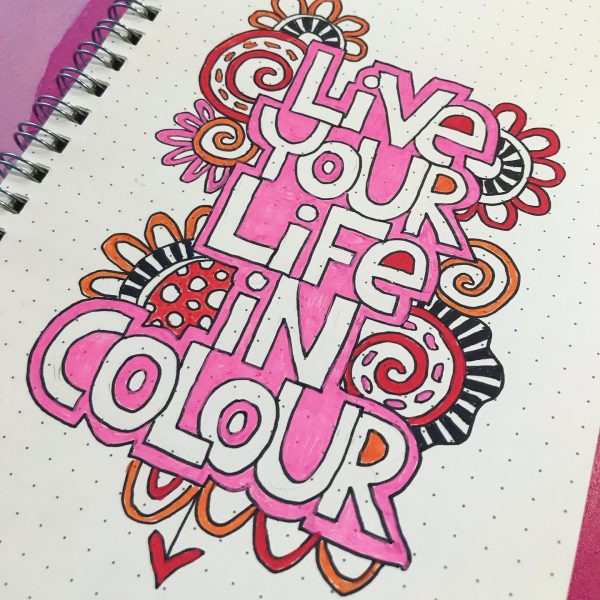 LiVe
YOUR
LiFe
iN
COLOUR